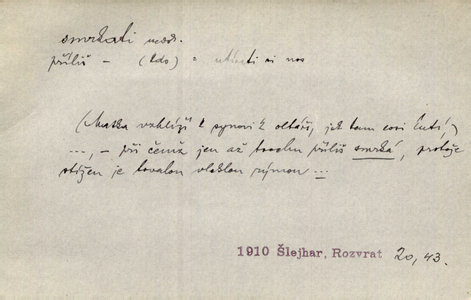 smrkati nedok.
příliš – (kdo) = utírati si nos
(Matka vzhlíží k synovi k oltáři, jak tam corsi kutí,)
..., – při čemž jen až trochu příliš smrká, protože
stižen je trvalou vleklou rýmou ...
1910 Šlejhar, Rozvrat 20, 43.